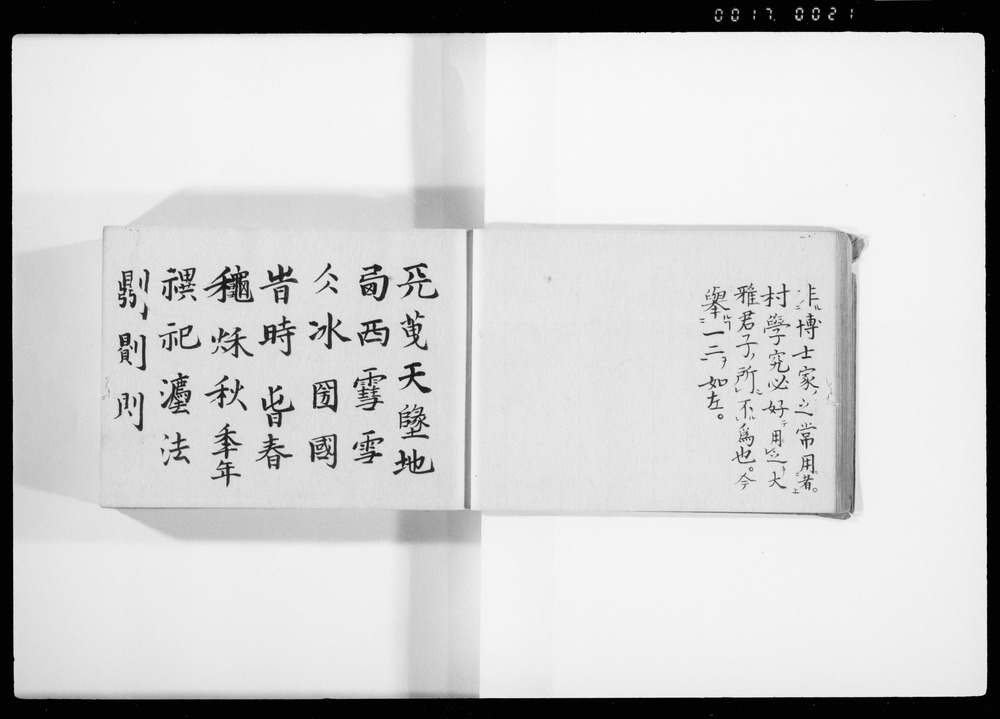 0017 0021
非博士家之常用者。
村學究必好用之大
雅君子所不爲也。今
擧一二ヲ如左。
兲 天 墬地
西 䨮雪
仌冰 圀國
旹時 旾春
龝秋 秊年
禩祀 灋法
則